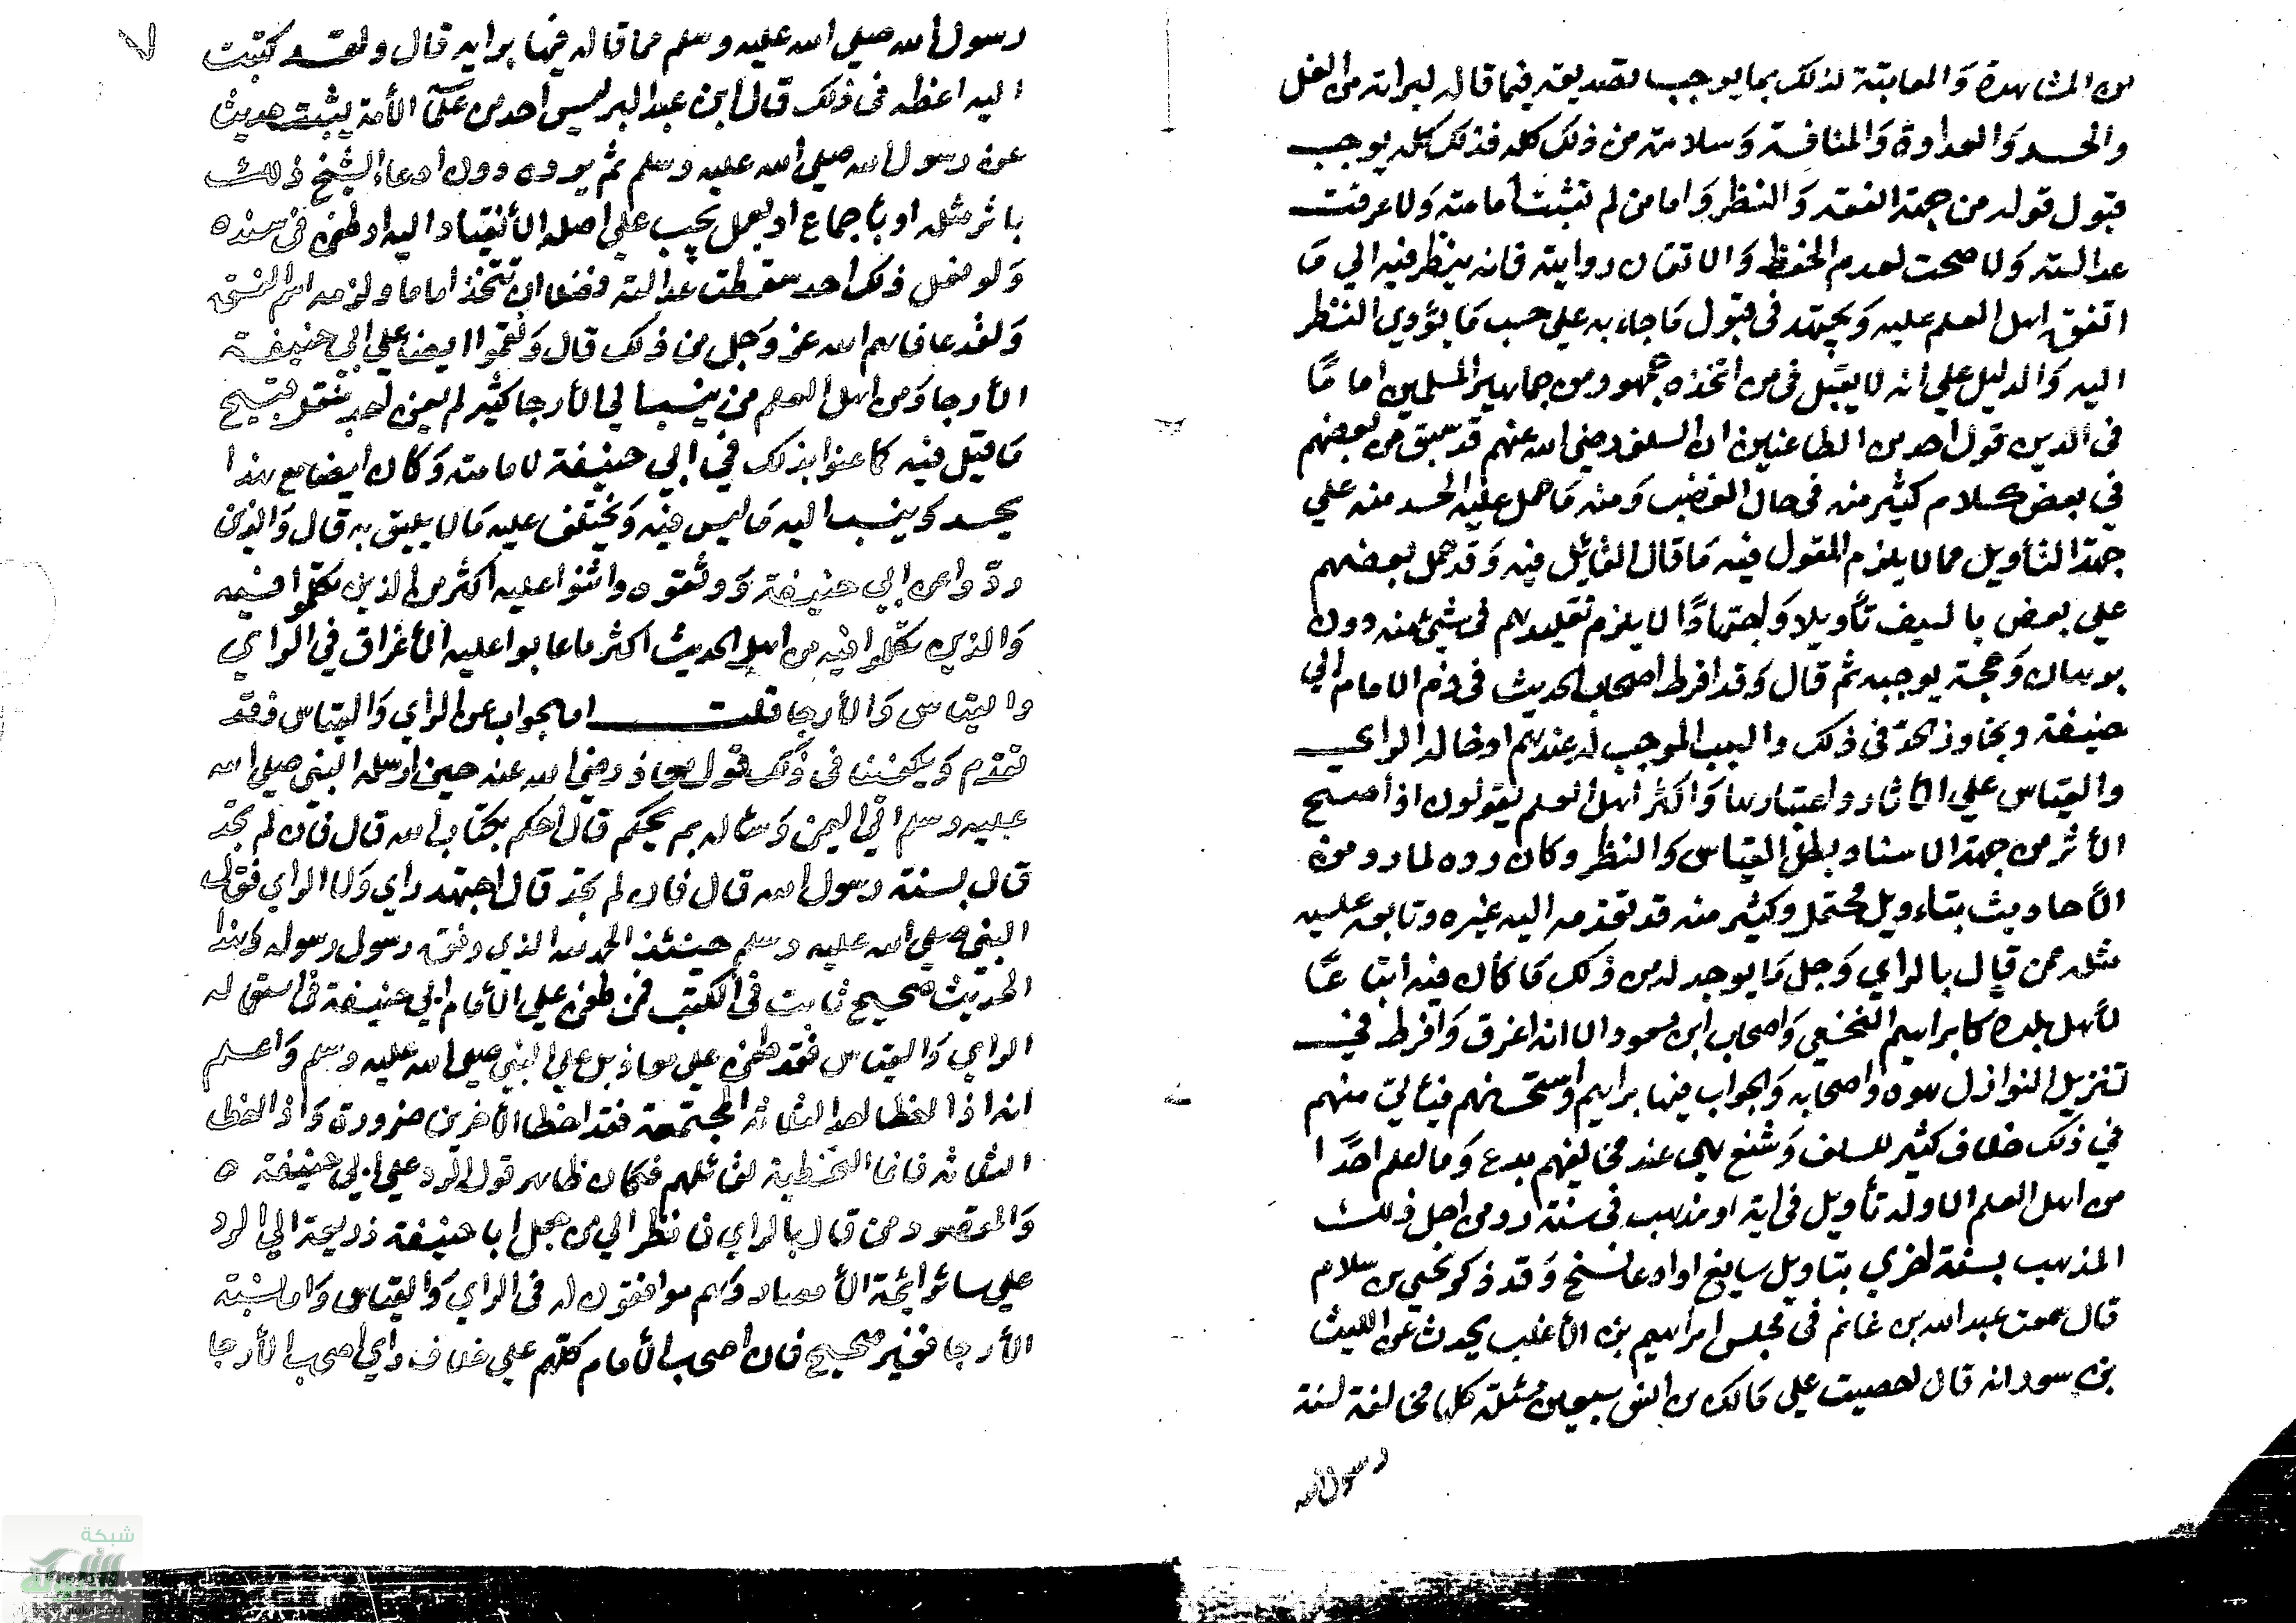 من المشاهدة والمعاينة لذلك بما يوجب تصديقه فيما قاله لبرائه من الغل
والحسد والعداوة والمنافسة وسلامته من ذلك كله فذلك كله يوجب
قبول قوله من جهة الفقه والنظر واما من لم تثبت أمامته ولا عرفت
عدالته ولا صحت لعدم الحفظ والاتقان روايته فانه ينظر فيه الي ما
اتفق اهل العلم عليه ويجتهد في قبول ما جاء به علي حسب ما يؤدي النظر
اليه والدليل علي انه لا يقبل في من اتخذه جمهور من جماهير المسلمين اماما
في الدين قول احد من الطاعنين ان السلف رضي الله عنهم قد سبق من بعضهم
في بعض كلام كثير منه في حال الغضب ومنه ما حمل عليه الحسد منه علي
جهة التأويل مما لا يلزم المقول فيه ما قال القائل فيه وقد حمل بعضهم
علي بعض بالسيف تأويلا واجتهادا لا يلزم تقليدهم في شيئ منه دون
برهان وحجة يوجبه ثم قال وقد افرط اصحاب الحديث في ذم الامام ابي
حنيفة وتجاوز الحد في ذلك والسبب الموجب له عندهم ادخاله الراي
والقياس علي الآثار واعتبارها واكثر اهل العلم يقولون اذا صح
الأثر من جهة الاسناد بطل القياس والنظر وكان رده لما رد من
الأحاديث بتاءويل محتمل وكثير منه قد تقدمه اليه غيره وتابعه عليه
مثله ممن قال بالراي وجل ما يوجد له من ذلك ما كان فيه اتباعا
لأهل بلده كابراهيم النخعي واصحاب ابن مسعود الا انه اغرق وافرط في
تنزيل النوازل هو واصحابه والجواب فيها برايهم واستحسانهم فيأتي منهم
في ذلك خلاف كثير للسلف وشنع هي عند مخالفيهم بدع وما لعلم احدا
من اهل العلم الا وله تأويل في اية او مذهب في سنة رد من اجل ذلك
المذهب بسنة اخري بتاويل سايغ او ادعا نسخ وقد ذكر يحيي بن سلام
قال سمعت عبد الله بن غانم في مجلس ابراهيم بن الأغلب يحدث عن الليث
بن سعد انه قال احصيت علي مالك بن انس سبعين مسئلة كلها مخالفة لسنة
رسول الله
٧
رسول الله صلي الله عليه وسلم مما قاله فيها برايه قال ولقد كتبت
اليه اعظه في ذلك قال ابن عبد البر ليس احد من علماء الأمة يثبت حديث
عن رسول الله صلي الله عليه وسلم ثم يرده دون ادعاء الشيخ ذلك
باثر مثله او باجماع او بعمل يجب علي اصله الأنقياد اليه او طعن في سنده
ولو فعل ذلك احد سقطت عدالته فضلا ان تتخذ اماما ولزمه اسم الفسق
ولقد عافاهم الله عز وجل من ذلك قال ونقموا ايضا علي ابي حنيفة
الأرجا ومن اهل العلم من ينسب الي الأرجا كثير لم يعن احد بنقل قبيح
ما قيل فيه كما عنوا بذلك في ابي حنيفة لامامته وكان ايضا مع هذا
يحسد وينسب اليه ما ليس فيه ويختلق عليه ما لا يليق به قال والذين
رووا عن ابي حنيفة ووثقوه واثنوا عليه اكثر من الذين تكلموا فيه
والذين تكلموا فيه من اهل الحديث اكثر ما عابوا عليه الأغراق في الراي
والقياس والأرجا قلت اما الجواب عن الراي والقياس فقد
تقدم ويكفينا في ذلك قول معاذ رضي الله عنه حين ارسله النبي صلي الله
عليه وسلم الي اليمن وساله بم يحكم قال احكم بكتاب الله قال فان لم تجد
قال بسنة رسول الله قال فان لم تجد قال اجتهد راي ولا الراي فقال
النبي صلي الله عليه وسلم حينئذ الحمد لله الذي وفق رسول رسوله وهذا
الحديث صحيح ثابت في الكتب فمن طعن علي الأمام ابي حنيفة في استعماله
الراي والقياس فقد طعن علي معاذ بل علي النبي صلي الله عليه وسلم واعلم
انه اذا اخطا احد الثلاثه المجتمعة فقد اخطا الأخرين ضرورة واذا اخطا
الثلاثه فانما التخطية لقائلهم فكان ظاهر قول الرد علي ابي حنيفة
والمقصود من قال بالراي فانظر الي من جعل ابا حنيفة ذريعة الي الرد
علي سائر ائمة الأمصار وهم موافقون له في الراي والقياس واما نسبة
الأرجا فغير صحيح فان اصحاب الأمام كلهم علي خلاف راي اصحاب الأرجا
شبكة
الألوكة